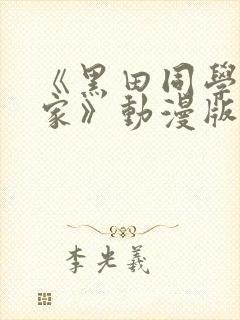 《黑田同學
家》動漫版
李光羲